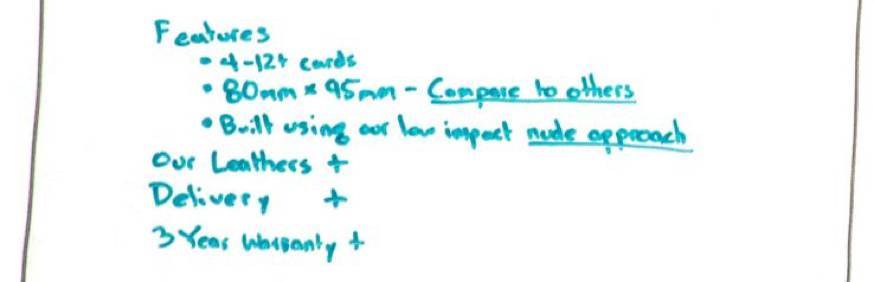 Features
• 4-12+ cards
• 80mm x 95mm - Compare to others
• Built using our low impact nude approach
Our Leathers +
Delivery +
3 Year Warranty +